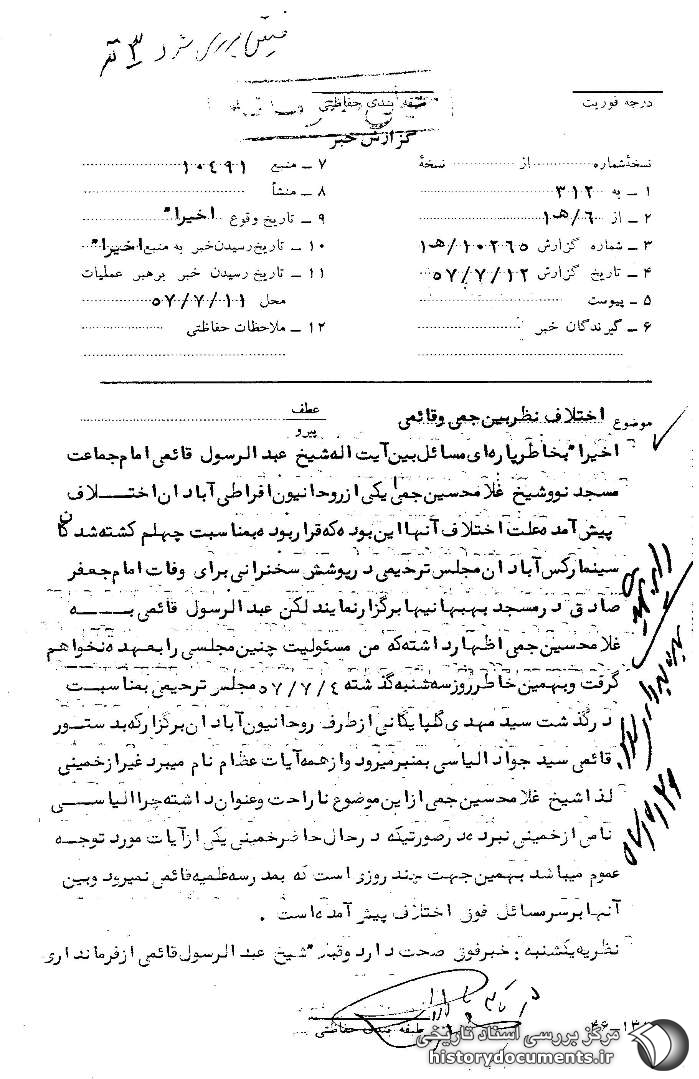 درجه فوریت
طبقه بندی حفاظتی
گزارش خبر
نسخهٔ شماره از نسخهٔ
۱ ــ به ۳۱۲
۲ ــ از ۶/هـ۱
۳ ــ شماره گزارش ۱۰۲۶۵/هـ۱
۴ ــ تاریخ گزارش ۵۷/۷/۱۲
۵ ــ پیوست
۶ ــ گیرندگان خبر
۷ ــ منبع ۱۰۴۹۱
۸ ــ منشأ
۹ ــ تاریخ وقوع اخیرا"
۱۰ ــ تاریخ رسیدن خبر به منبع اخیرا"
۱۱ ــ تاریخ رسیدن خبر برهبر عملیات
محل ۵۷/۷/۱۱
۱۲ ــ ملاحظات حفاظتی
موضوع اختلاف نظر بین جمی و قائمی
عطف
پیرو
اخیرا" بخاطر پاره ای مسائل بین آیت اله شیخ عبدالرسول قائمی امام جماعت
مسجد نو و شیخ غلامحسین جمی یکی از روحانیون افراطی آبادان اختلاف
پیش آمده علت اختلاف آنها این بوده که قرار بود بمناسبت چهلم کشته شدگان
سینما رکس آبادان مجلس ترحیمی در پوشش سخنرانی برای وفات امام جعفر
صادق در مسجد بهبهانیها برگزار نمایند لکن عبدالرسول قائمی به
غلامحسین جمی اظهار داشته که من مسئولیت چنین مجلسی را بعهده نخواهم
گرفت و بهمین خاطر روز سه شنبه گذشته ۵۷/۷/۴ مجلس ترحیمی بمناسبت
درگذشت سید مهدی گلپایگانی از طرف روحانیون آبادان برگزار که بدستور
قائمی سید جواد الیاسی بمنبر میرود و از همه آیات عظام نام میبرد غیر از خمینی
لذا شیخ غلامحسین جمی از این موضوع ناراحت و عنوان داشته چرا الیاسی
نامی از خمینی نبرده در صورتیکه در حال حاضر خمینی یکی از آیات مورد توجه
عموم میباشد بهمین جهت چند روزی است که بمدرسه علمیه قائمی نمیرود و بین
آنها بر سر مسائل فوق اختلاف پیش آمده است .
نظریه یکشنبه : خبر فوق صحت دارد و قبلا" شیخ عبدالرسول قائمی از فرمانداری
طبقه بندی حفاظتی
مرکز بررسی اسناد تاریخی
historydocuments.ir